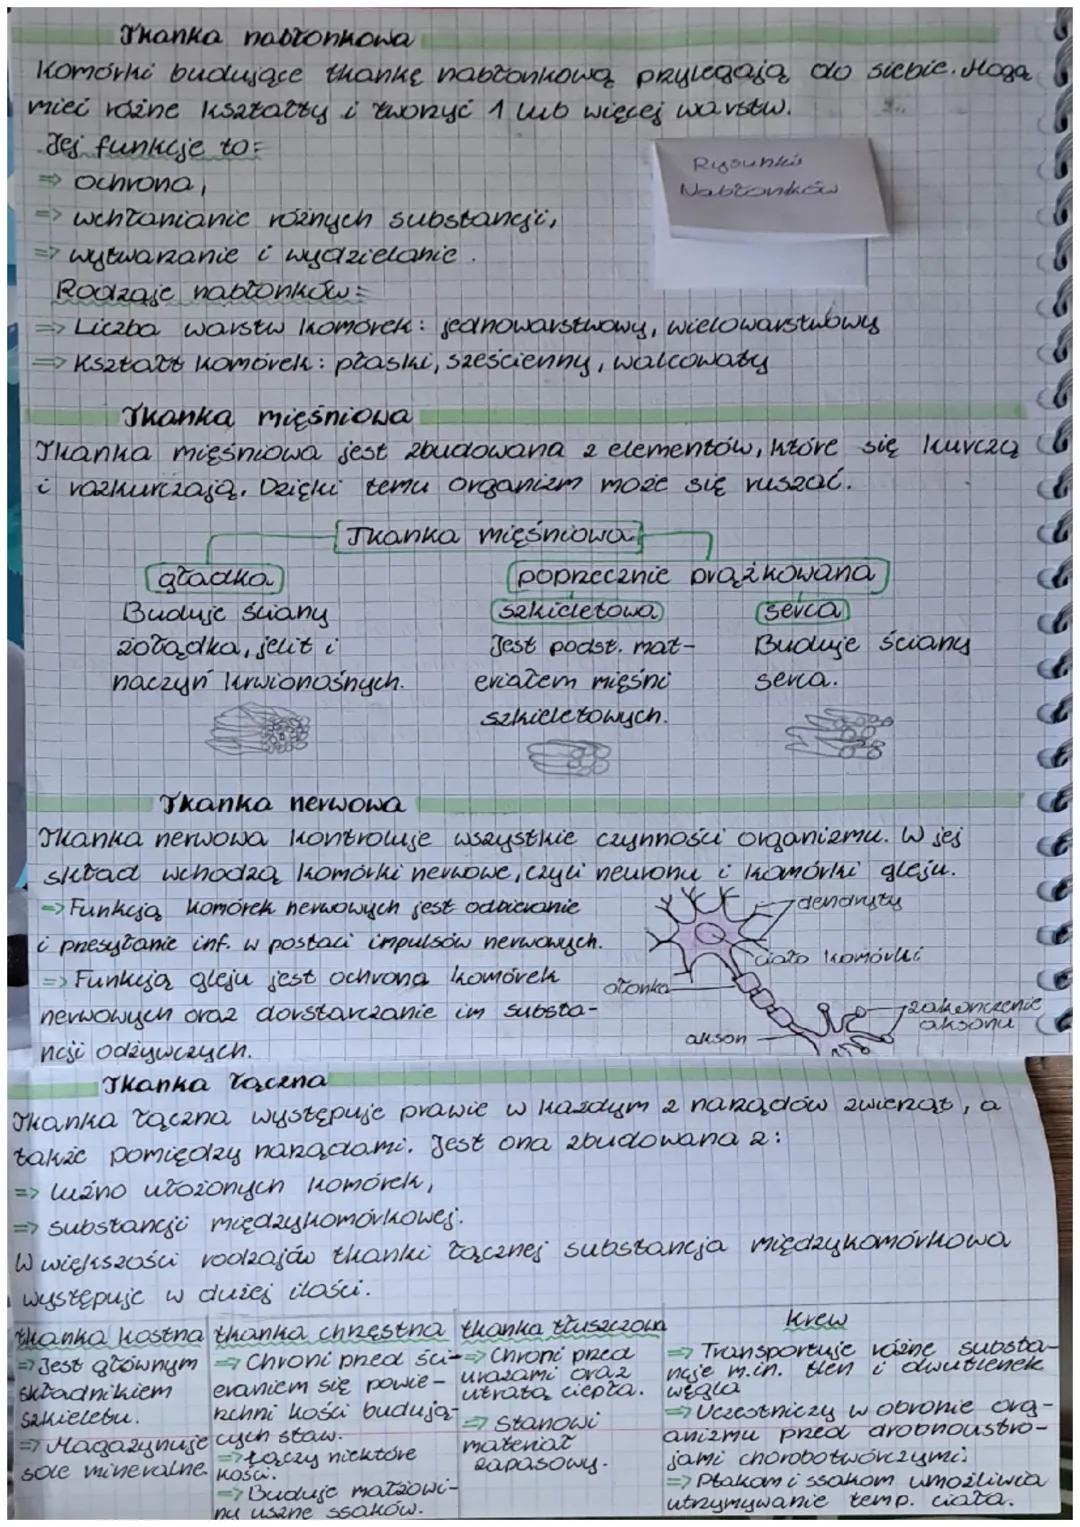 Tkanka nabłonkowa
Komórki budujące tkankę nabłonkową przylegają do siebie. Mogą
mieć różne kształty i tworzyć 1 lub więcej warstw.
Jej funkcje to:
=> ochrona,
=> wchłanianie różnych substancji,
=> wytwarzanie i wydzielanie.
Rysunki
Nabłonków
Rodzaje nabłonków:
=> Liczba warstw komórek: jednowarstwowy, wielowarstwowy
=> Kształt komórek: płaski, sześcienny, walcowaty
Tkanka mięśniowa
Tkanka mięśniowa jest zbudowana z elementów, które się kurczą
i rozkurczają. Dzięki temu organizm może się ruszać.
Tkanka mięśniowa
gładka
poprzecznie prążkowana
Buduje ściany
żołądka, jelit i
naczyń krwionośnych.
szkieletowa
Jest podst. mat-
eriałem mięśni
szkieletowych.
serca
Buduje ściany
serca.
Tkanka nerwowa
Tkanka nerwowa kontroluje wszystkie czynności organizmu. W jej
skład wchodzą komórki nerwowe, czyli neurony i komórki gleju.
=> Funkcją komórek nerwowych jest odbieranie
i przesyłanie inf. w postaci impulsów nerwowych.
=> Funkcją gleju jest ochrona komórek
nerwowych oraz dorstarczanie im substa-
ncji odżywczych.
dendryty
ciało komórki
otonka
akson
zakończenie
aksonu
Tkanka łączna
Tkanka łączna występuje prawie w każdym z narządów zwierząt, a
także pomiędzy narządami. Jest ona zbudowana z:
=> luźno ułożonych komórek,
=> substancji międzykomórkowej.
W większości rodzajów tkanki łącznej substancja międzykomórkowa
występuje w dużej ilości.
tkanka kostna
=> Jest głównym
składnikiem
szkieletu.
=> Magazynuje
sole mineralne.
tkanka chrzęstna
=> Chroni przed ści-
eraniem się powie-
rzchni kości budują-
cych staw.
=> Łączy niektóre
kości.
=> Buduje małżowi-
ny uszne ssaków.
tkanka tłuszczowa
=> Chroni przed
urazami oraz
utratą ciepła.
=> Stanowi
materiał
zapasowy.
Krew
=> Transportuje różne substa-
ncje m.in. tlen i dwutlenek
węgla
=> Uczestniczy w obronie org-
anizmu przed drobnoustro-
jami chorobotwórczymi.
=> Ptakom i ssakom umożliwia
utrzymywanie temp. ciała.